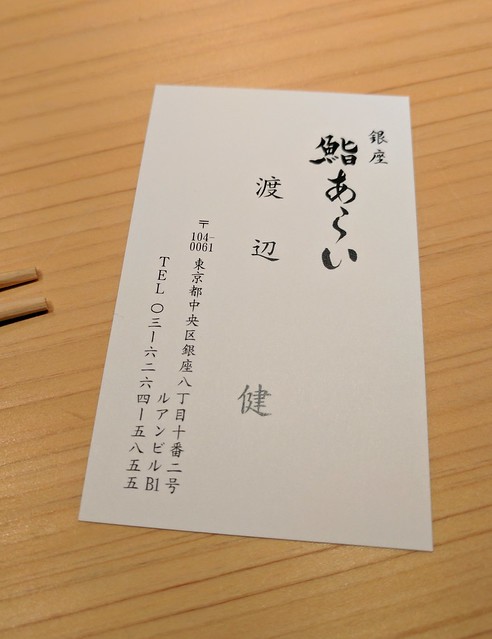 銀座
鮨あらい
渡辺 健
〒104-0061
東京都中央区銀座八丁目十番二号
ルアンビルB1
TEL 〇三ー六二六四ー五八五五